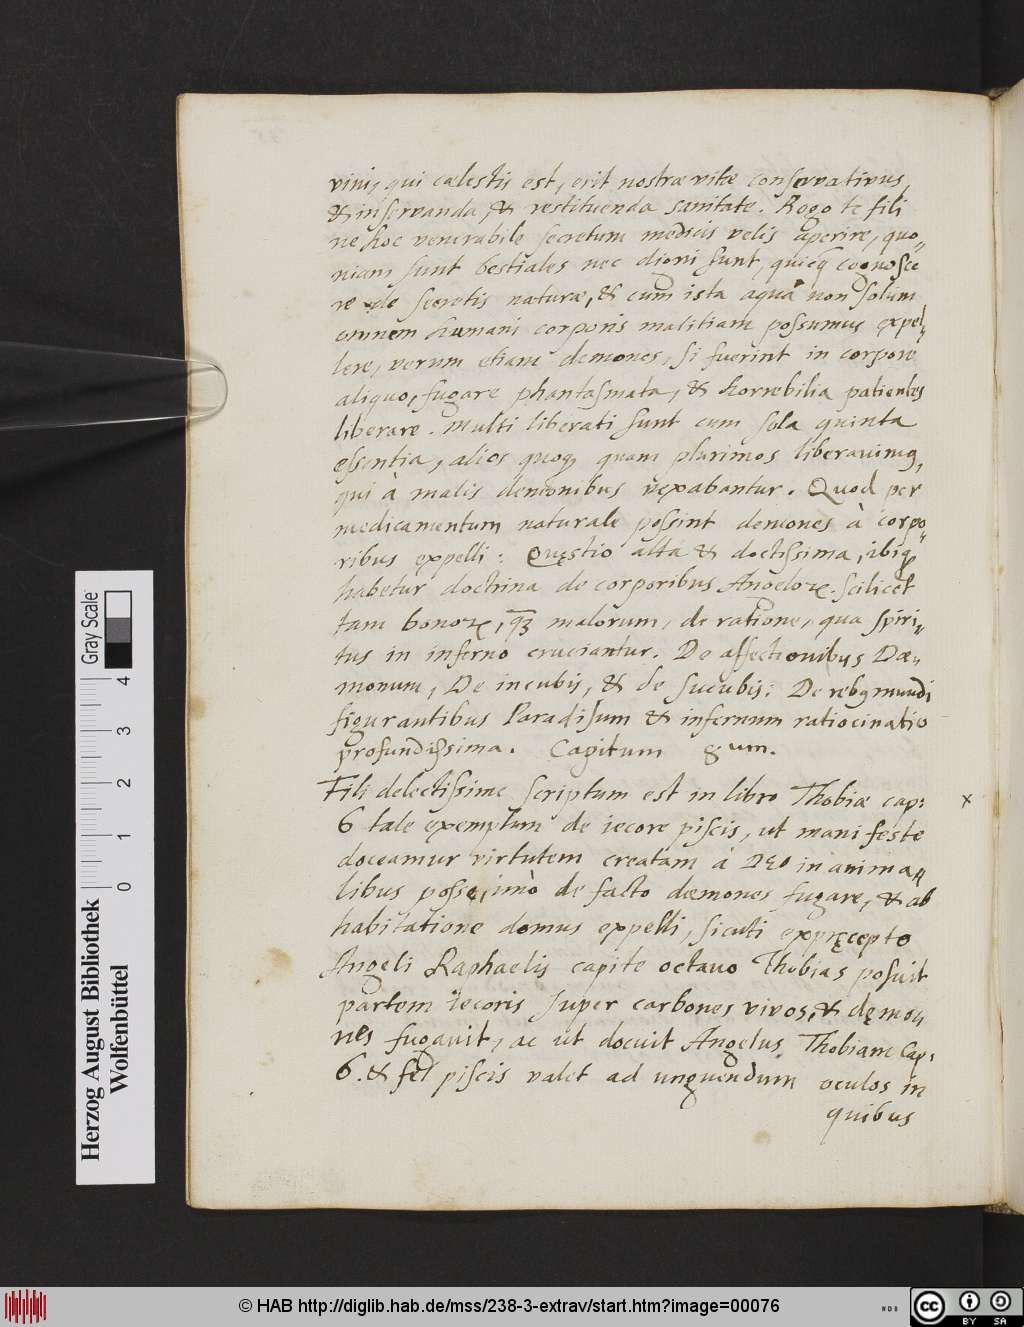 vini, qui cælestis est, erit nostræ vitæ conservativus,
& in servanda, & restituenda sanitate. Rogo te fili
ne hoc venerabile secretum medicis velis aperire, quo„
niam sunt bestiales nec digni sunt, quicq cognosce
re de secretis naturæ, & cum ista aqua non solum
omnem humani corporis malitiam possumus expel„
lere, verum etiam demones, si fuerint in corpore
aliquo, fugare phantasmata, & horrebilia patientes
liberare. Multi liberati sunt cum sola quinta
essentia, alios quoq quam plurimos liberavimq,
qui à malis demonibus vexabantur. Quod per
medicamentum naturale possint demones à corpo„
ribus expelli: Quęstio alta & doctissima, ibiq
habetur doctrina de corporibus Angeloꝝ. scilicet
tam bonoꝝ, qꝫ malorum, de ratione, qua spiri„
tus in inferno cruciantur. De affectionibus Dæ„
monum, De incubis, & de sucubis: De rebq mundi
figurantibus Paradisum & infernum ratiocinatio
profundissima. Capitum 8um.
Fili delectissime scriptum est in libro Thobiæ cap: x
6 tale exemplum de iecore piscis, ut manifeste
doceamur virtutem creatam á Deo in anima„
libus posse, imò de facto dæmones fugare, & ab
habitatione domus expelli, sicuti ex pręcepto
Angeli Raphaelis capite octavo Thobias posuit
partem iecoris super carbones vivos, & dęmo„
nes fugavit, ac ut docuit Angelus Thobiam Cap:
6. & fel piscis valet ad unguendum oculos in
quibus
Gray Scale
0 1 2 3 4
Herzog August Bibliothek
Wolfenbüttel
© HAB http://diglib.hab.de/mss/238-3-extrav/start.htm?image=00076
cc BY SA